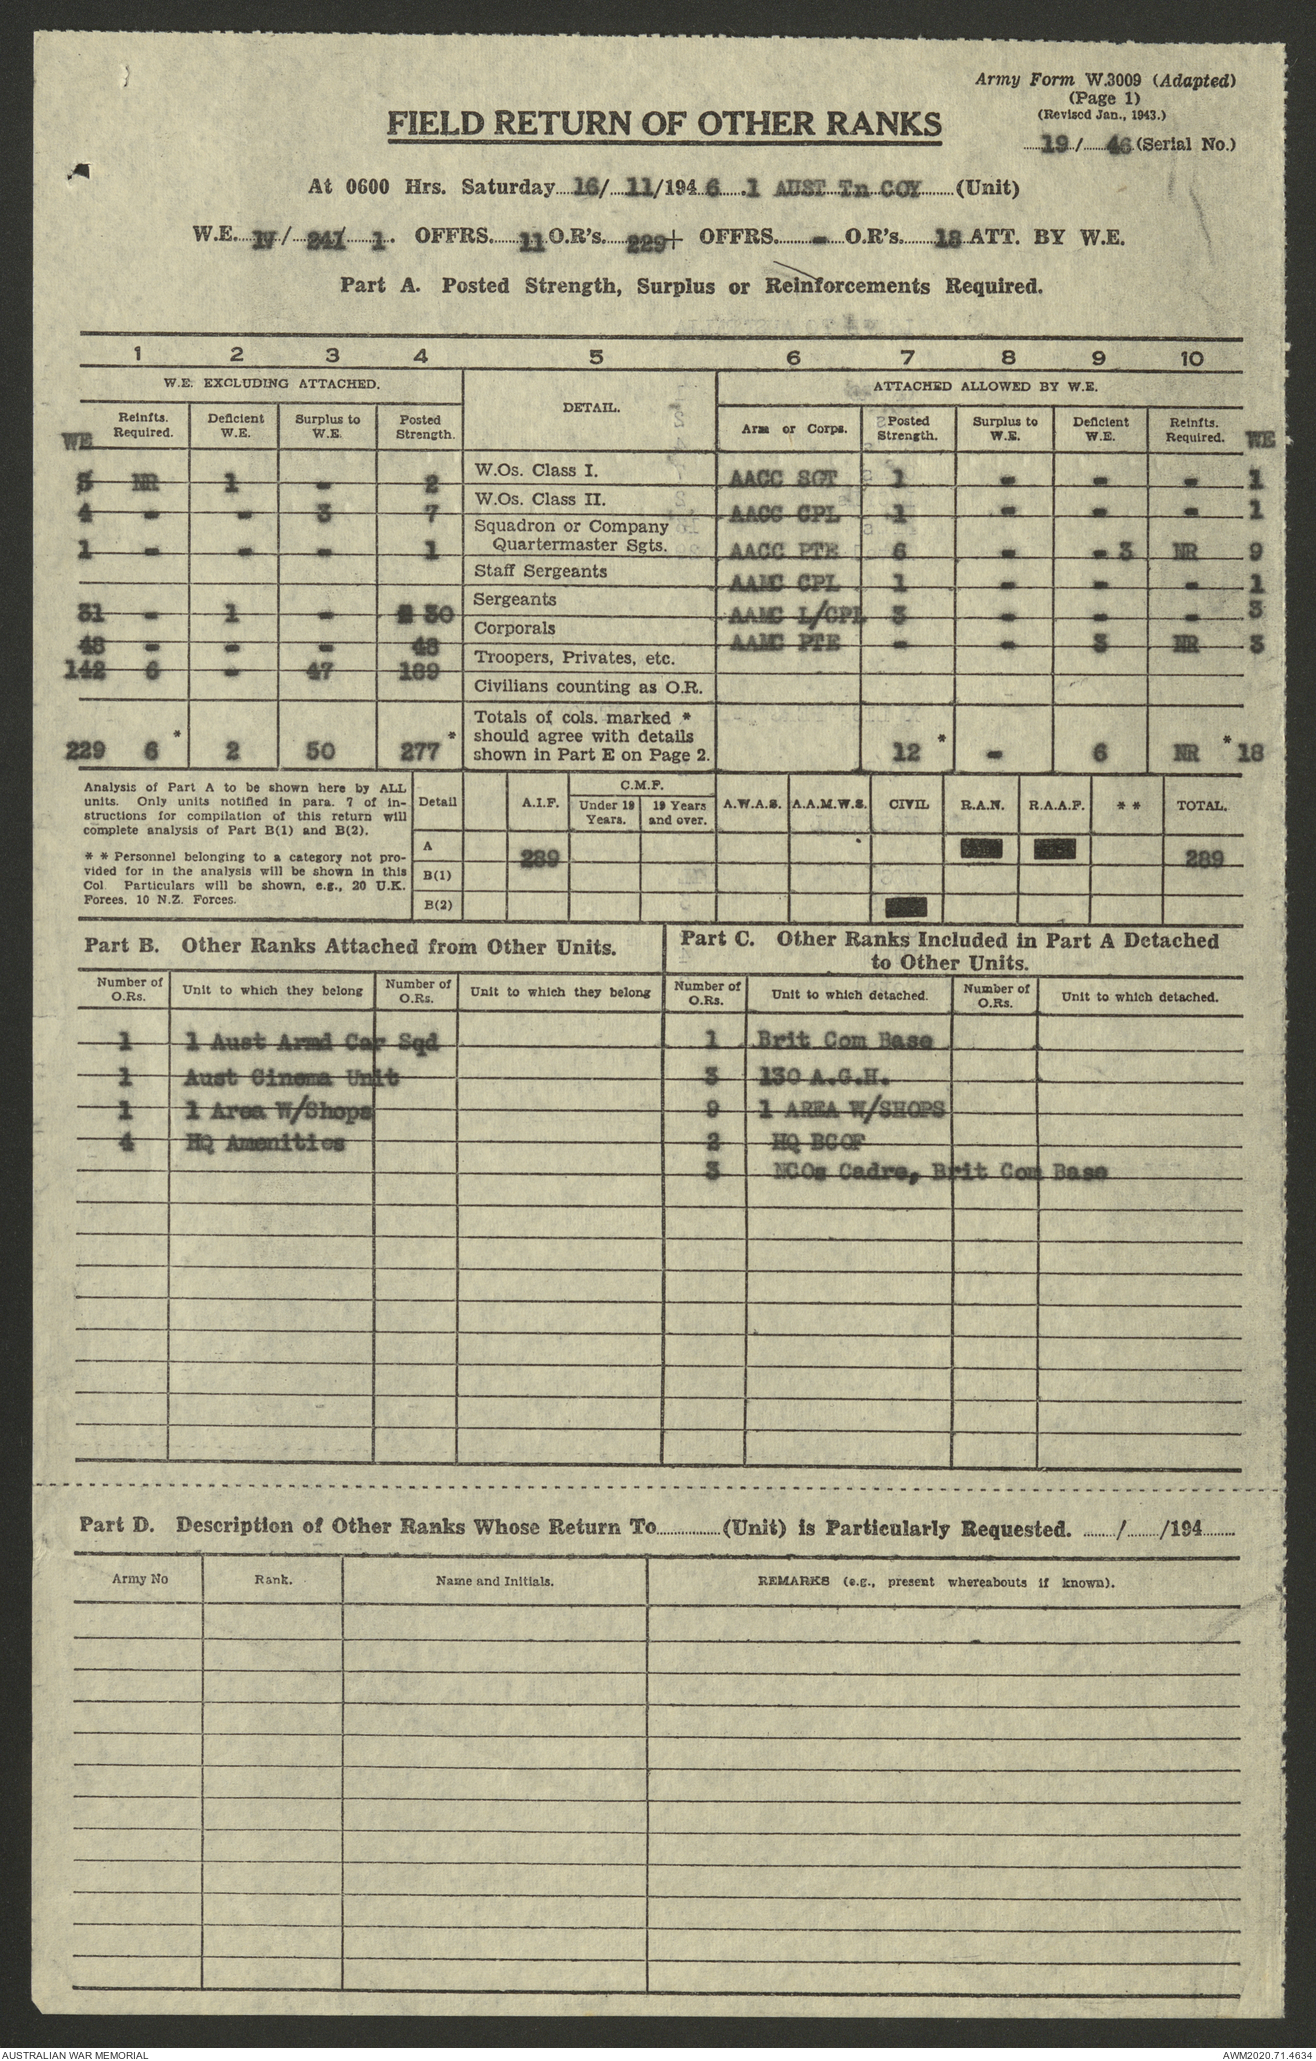 Army Form W.3009 (Adapted)
(Page 1)
(Revised Jan., 1943.)
FIELD RETURN OF OTHER RANKS
19 / 46 (Serial No.)
At 0600 Hrs. Saturday 16/ 11/194 6 1 AUST Tn COY (Unit)
W.E. IV/ 247/ 1. OFFRS. 11 O.R's. 229+ OFFRS. - O.R's. 18 ATT. BY W.E.
Part A. Posted Strength, Surplus or Reinforcements Required.
1 2 3 4 5 6 7 8 9 10
W.E. EXCLUDING ATTACHED. DETAIL. ATTACHED ALLOWED BY W.E.
WE Reinfts. Required. Deficient W.E. Surplus to W.E. Posted Strength. Arm or Corps. Posted Strength. Surplus to W.E. Deficient W.E. Reinfts. Required. WE
3 NR 1 - 2 W.Os. Class I. AACC SGT 1 - - - 1
4 - - 3 7 W.Os. Class II. AACC CPL 1 - - - 1
1 - - - 1 Squadron or Company Quartermaster Sgts. AACC PTE 6 - - 3 NR 9
Staff Sergeants AAMC CPL 1 - - - 1
31 - 1 - 30 Sergeants AAMC L/CPL 3 - - - 3
48 - - - 48 Corporals AAMC PTE - - 3 NR 3
142 6 - 47 189 Troopers, Privates, etc.
Civilians counting as O.R.
229 6 * 2 50 277 * Totals of cols. marked * should agree with details shown in Part E on Page 2. 12 * - 6 NR * 18
Analysis of Part A to be shown here by ALL
units. Only units notified in para. 7 of in-
structions for compilation of this return will
complete analysis of Part B(1) and B(2).
* * Personnel belonging to a category not pro-
vided for in the analysis will be shown in this
Col. Particulars will be shown, e.g., 20 U.K.
Forces, 10 N.Z. Forces.
Detail A.I.F. C.M.F. Under 19 Years. 19 Years and over. A.W.A.S. A.A.M.W.S. CIVIL R.A.N. R.A.A.F. * * TOTAL.
A 289 289
B(1)
B(2)
Part B. Other Ranks Attached from Other Units.
Number of O.Rs. Unit to which they belong Number of O.Rs. Unit to which they belong
1 1 Aust Armd Car Sqd
1 Aust Cinema Unit
1 1 Area W/Shops
4 HQ Amenities
Part C. Other Ranks Included in Part A Detached
to Other Units.
Number of O.Rs. Unit to which detached. Number of O.Rs. Unit to which detached.
1 Brit Com Base
3 130 A.G.H.
9 1 AREA W/SHOPS
2 HQ BCOF
3 NCOs Cadre, Brit Com Base
Part D. Description of Other Ranks Whose Return To (Unit) is Particularly Requested. / /194
Army No Rank. Name and Initials. REMARKS (e.g., present whereabouts if known).
AUSTRALIAN WAR MEMORIAL AWM2020.71.4634